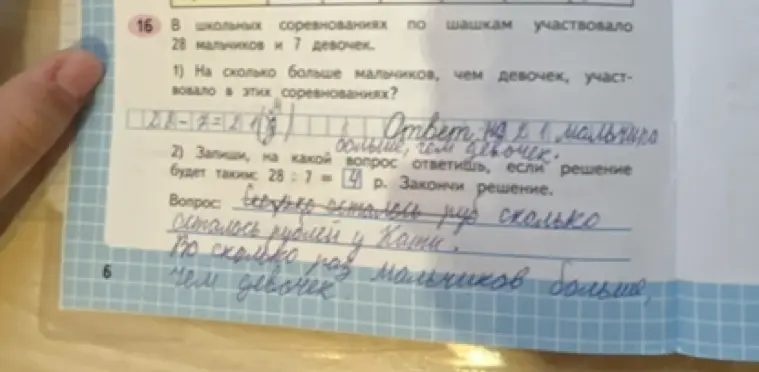 16 В школьных соревнованиях по шашкам участвовало
28 мальчиков и 7 девочек.
1) На сколько больше мальчиков, чем девочек, участ-
вовало в этих соревнованиях?
28-7=21( ) Ответ: на 21 мальчика
больше, чем девочек.
2) Запиши, на какой вопрос ответишь, если решение
будет таким: 28 : 7 = 4 р. Закончи решение.
Вопрос: Сколько осталось руб сколько
осталось рублей у Кати.
Во сколько раз мальчиков больше,
чем девочек.
6